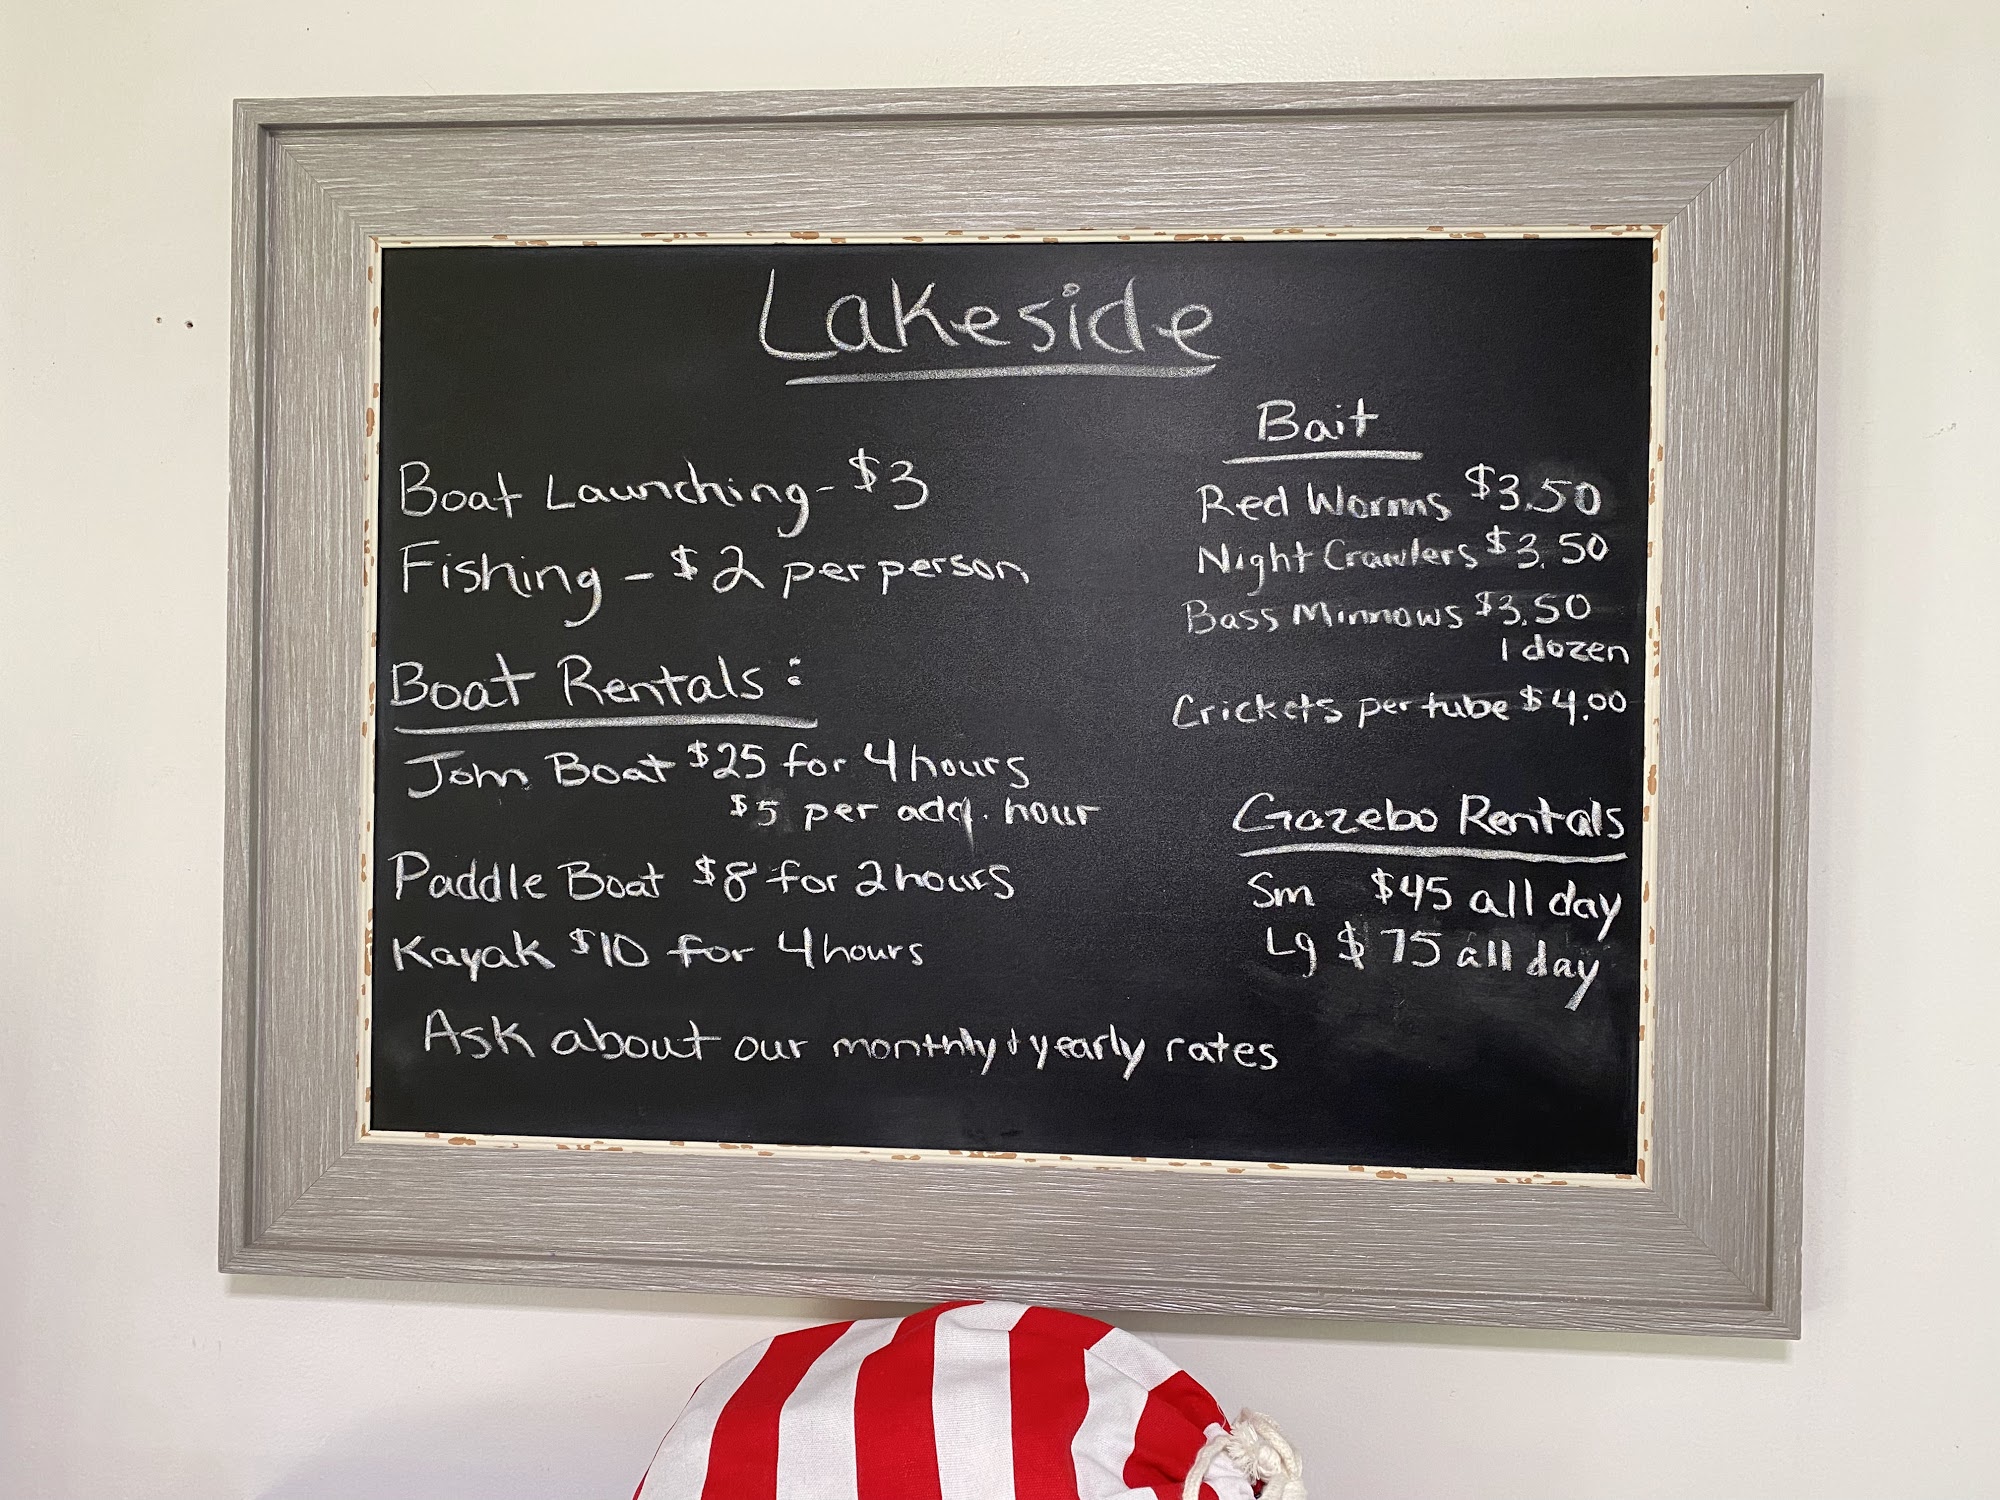 Lakeside
Boat Launching - $3
Fishing - $2 per person
Boat Rentals:
John Boat $25 for 4 hours
$5 per add. hour
Paddle Boat $8 for 2 hours
Kayak $10 for 4 hours
Ask about our monthly + yearly rates
Bait
Red Worms $3.50
Night Crawlers $3.50
Bass Minnows $3.50
1 dozen
Crickets per tube $4.00
Gazebo Rentals
Sm $45 all day
Lg $75 all day